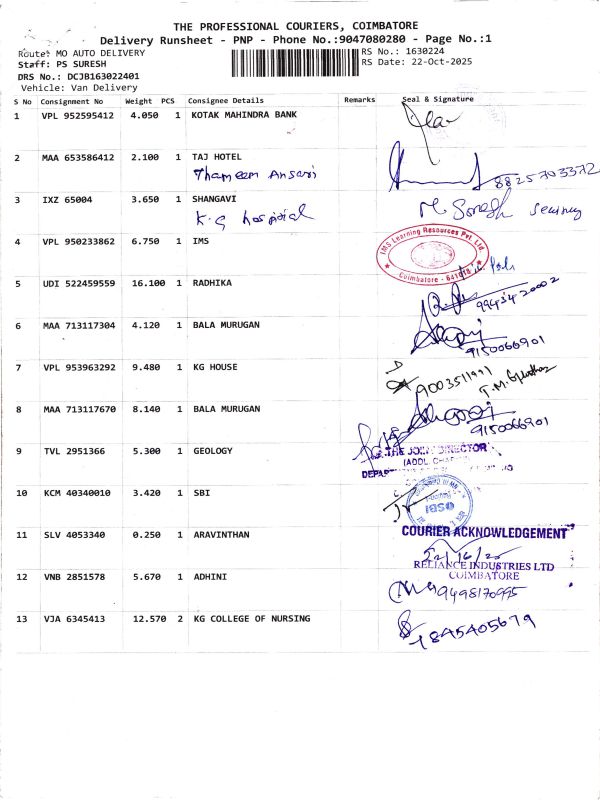 THE PROFESSIONAL COURIERS, COIMBATORE
Delivery Runsheet - PNP - Phone No.:9047080280 - Page No.:1
Route: MO AUTO DELIVERY
RS No.: 1630224
Staff: PS SURESH
RS Date: 22-Oct-2025
DRS No.: DCJB163022401
Vehicle: Van Delivery
S No Consignment No Weight PCS Consignee Details Remarks Seal & Signature
1 VPL 952595412 4.050 1 KOTAK MAHINDRA BANK
2 MAA 653586412 2.100 1 TAJ HOTEL
Thameem Ansari 8825703372
3 IXZ 65004 3.650 1 SHANGAVI
K.G hospital M Suresh
4 VPL 950233862 6.750 1 IMS
IMS Learning Resources Pvt. Ltd.
Coimbatore - 641018
5 UDI 522459559 16.100 1 RADHIKA
9943420002
6 MAA 713117304 4.120 1 BALA MURUGAN
9150066901
7 VPL 953963292 9.480 1 KG HOUSE
9003511991
8 MAA 713117670 8.140 1 BALA MURUGAN
9150066901
9 TVL 2951366 5.300 1 GEOLOGY
THE JOINT DIRECTOR
10 KCM 40340010 3.420 1 SBI
SBI
11 SLV 4053340 0.250 1 ARAVINTHAN
COURIER ACKNOWLEDGEMENT
RELIANCE INDUSTRIES LTD
COIMBATORE
12 VNB 2851578 5.670 1 ADHINI
9498170995
13 VJA 6345413 12.570 2 KG COLLEGE OF NURSING
7845405679